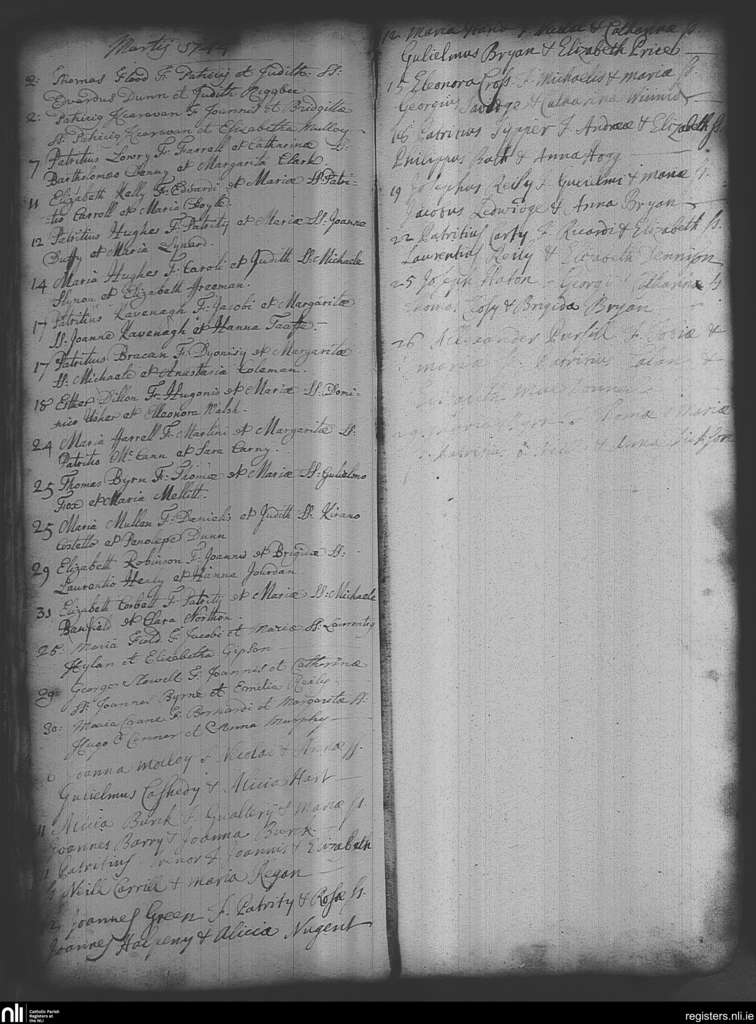 Martij 1744
2: Thomas Flood F. Patricij et Judith Ss:
Edvardus Dunn et Judith
2: Patricij Kearavan F. Joannis et Bridgittæ
Ss. Patricij Kearavan et Elizabetha
7 Patritius Lowry F. Farrell et Catharinæ Ss:
Bartholomeo Denny et Margarita Clerk.
11 Elizabeth Kelly F. Edvardi et Mariæ Ss. Patri-
tio Carroll et Maria Doyle.
12 Patritius Hughes F. Patrity et Mariæ Ss. Joanne
Duffy et Maria Lynard.
14 Maria Hughes F. Caroli et Judith Ss. Michaele
Flynon et Elizabeth Freeman.
17 Patritius Kavenagh F. Jacobi et Margaritæ
Ss. Joanne Kavenagh et Hanna Taaffe.
17 Patritius Bracan F. Dyonisij et Margaritæ
Ss. Michaele et Anastaria Coleman.
18 Esther Dillon F. Hugonis et Mariæ Ss. Domi-
nico Usher et Eleonora Walsh.
24 Maria Farrell F. Martini et Margaritæ Ss.
Patritio McCann et Sara Carny.
25 Thomas Byrn F. Thomæ et Mariæ Ss. Gulielmo
Fox et Maria Mellitt.
25 Maria Mullen F. Danielis et Judith Ss. Kirano
Costello et Penelope Dunn
29 Elizabeth Robinson F. Joannis et Brigidæ Ss.
Laurentio Healy et Hanna Jourdan
31 Elizabeth Corbett F. Patrity et Mariæ Ss. Michaele
Banfield et Clara Northon.
25. Maria Field F. Jacobi et Mariæ Ss. Laurentij
Hylan et Elizabetha Gipson
29 George Howell F. Joannis et Catherinæ
Ss. Joannes Byrne et Emilia Reily
30: Maria Crane F. Bernardi et Margaritæ Ss.
Hugo O Connor et Anna Murphy
Joanna Molloy F. Nicolai & Annæ Ss.
Gulielmus Cashedy & Alicia Hart
11 Alicia Burk F. Gualterij & Mariæ Ss.
Joannes Barry & Joanna Burk
Patritius Trenor F. Joannis & Elizabeth
Ss Neill Carrill & Maria Regan
Joannes Green F. Patrity & Rosæ Ss.
Joannes Halpeny & Alicia Nugent
12 Maria & Catharinæ Ss
Gulielmus Bryan & Elizabeth Price
15 Eleonora Cross F. Michaelis & Mariæ Ss.
Georgius & Catharina
16 Patritius F. Andreæ & Elizabeth Ss.
Philippus Bath & Anna Hogg
19 Josephus Reily F. Gulielmi & Mariæ Ss.
Jacobus Ledwidge & Anna Bryan
22 Patritius Carty F. Ricardi & Elizabeth Ss.
Laurentius Reily & Elizabeth Dennison
25 Joseph Haton F. Georgij & Catharinæ Ss
Thomas & Brigida Bryan
26 Alexander Pursell F. &
Mariæ Patritius &
Elizabeth
Maria Byrn F. Thomæ & Mariæ
Ss. Patritius & Anna
nli
Catholic Parish
Registers at
the NLI
registers.nli.ie